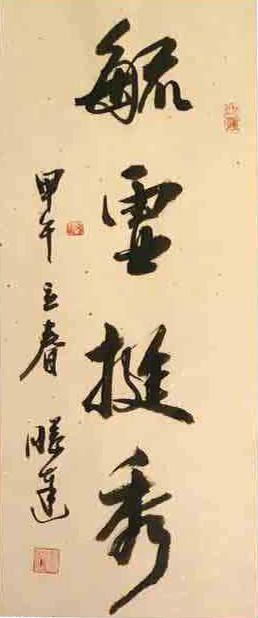 毓霊挺秀
甲午立春